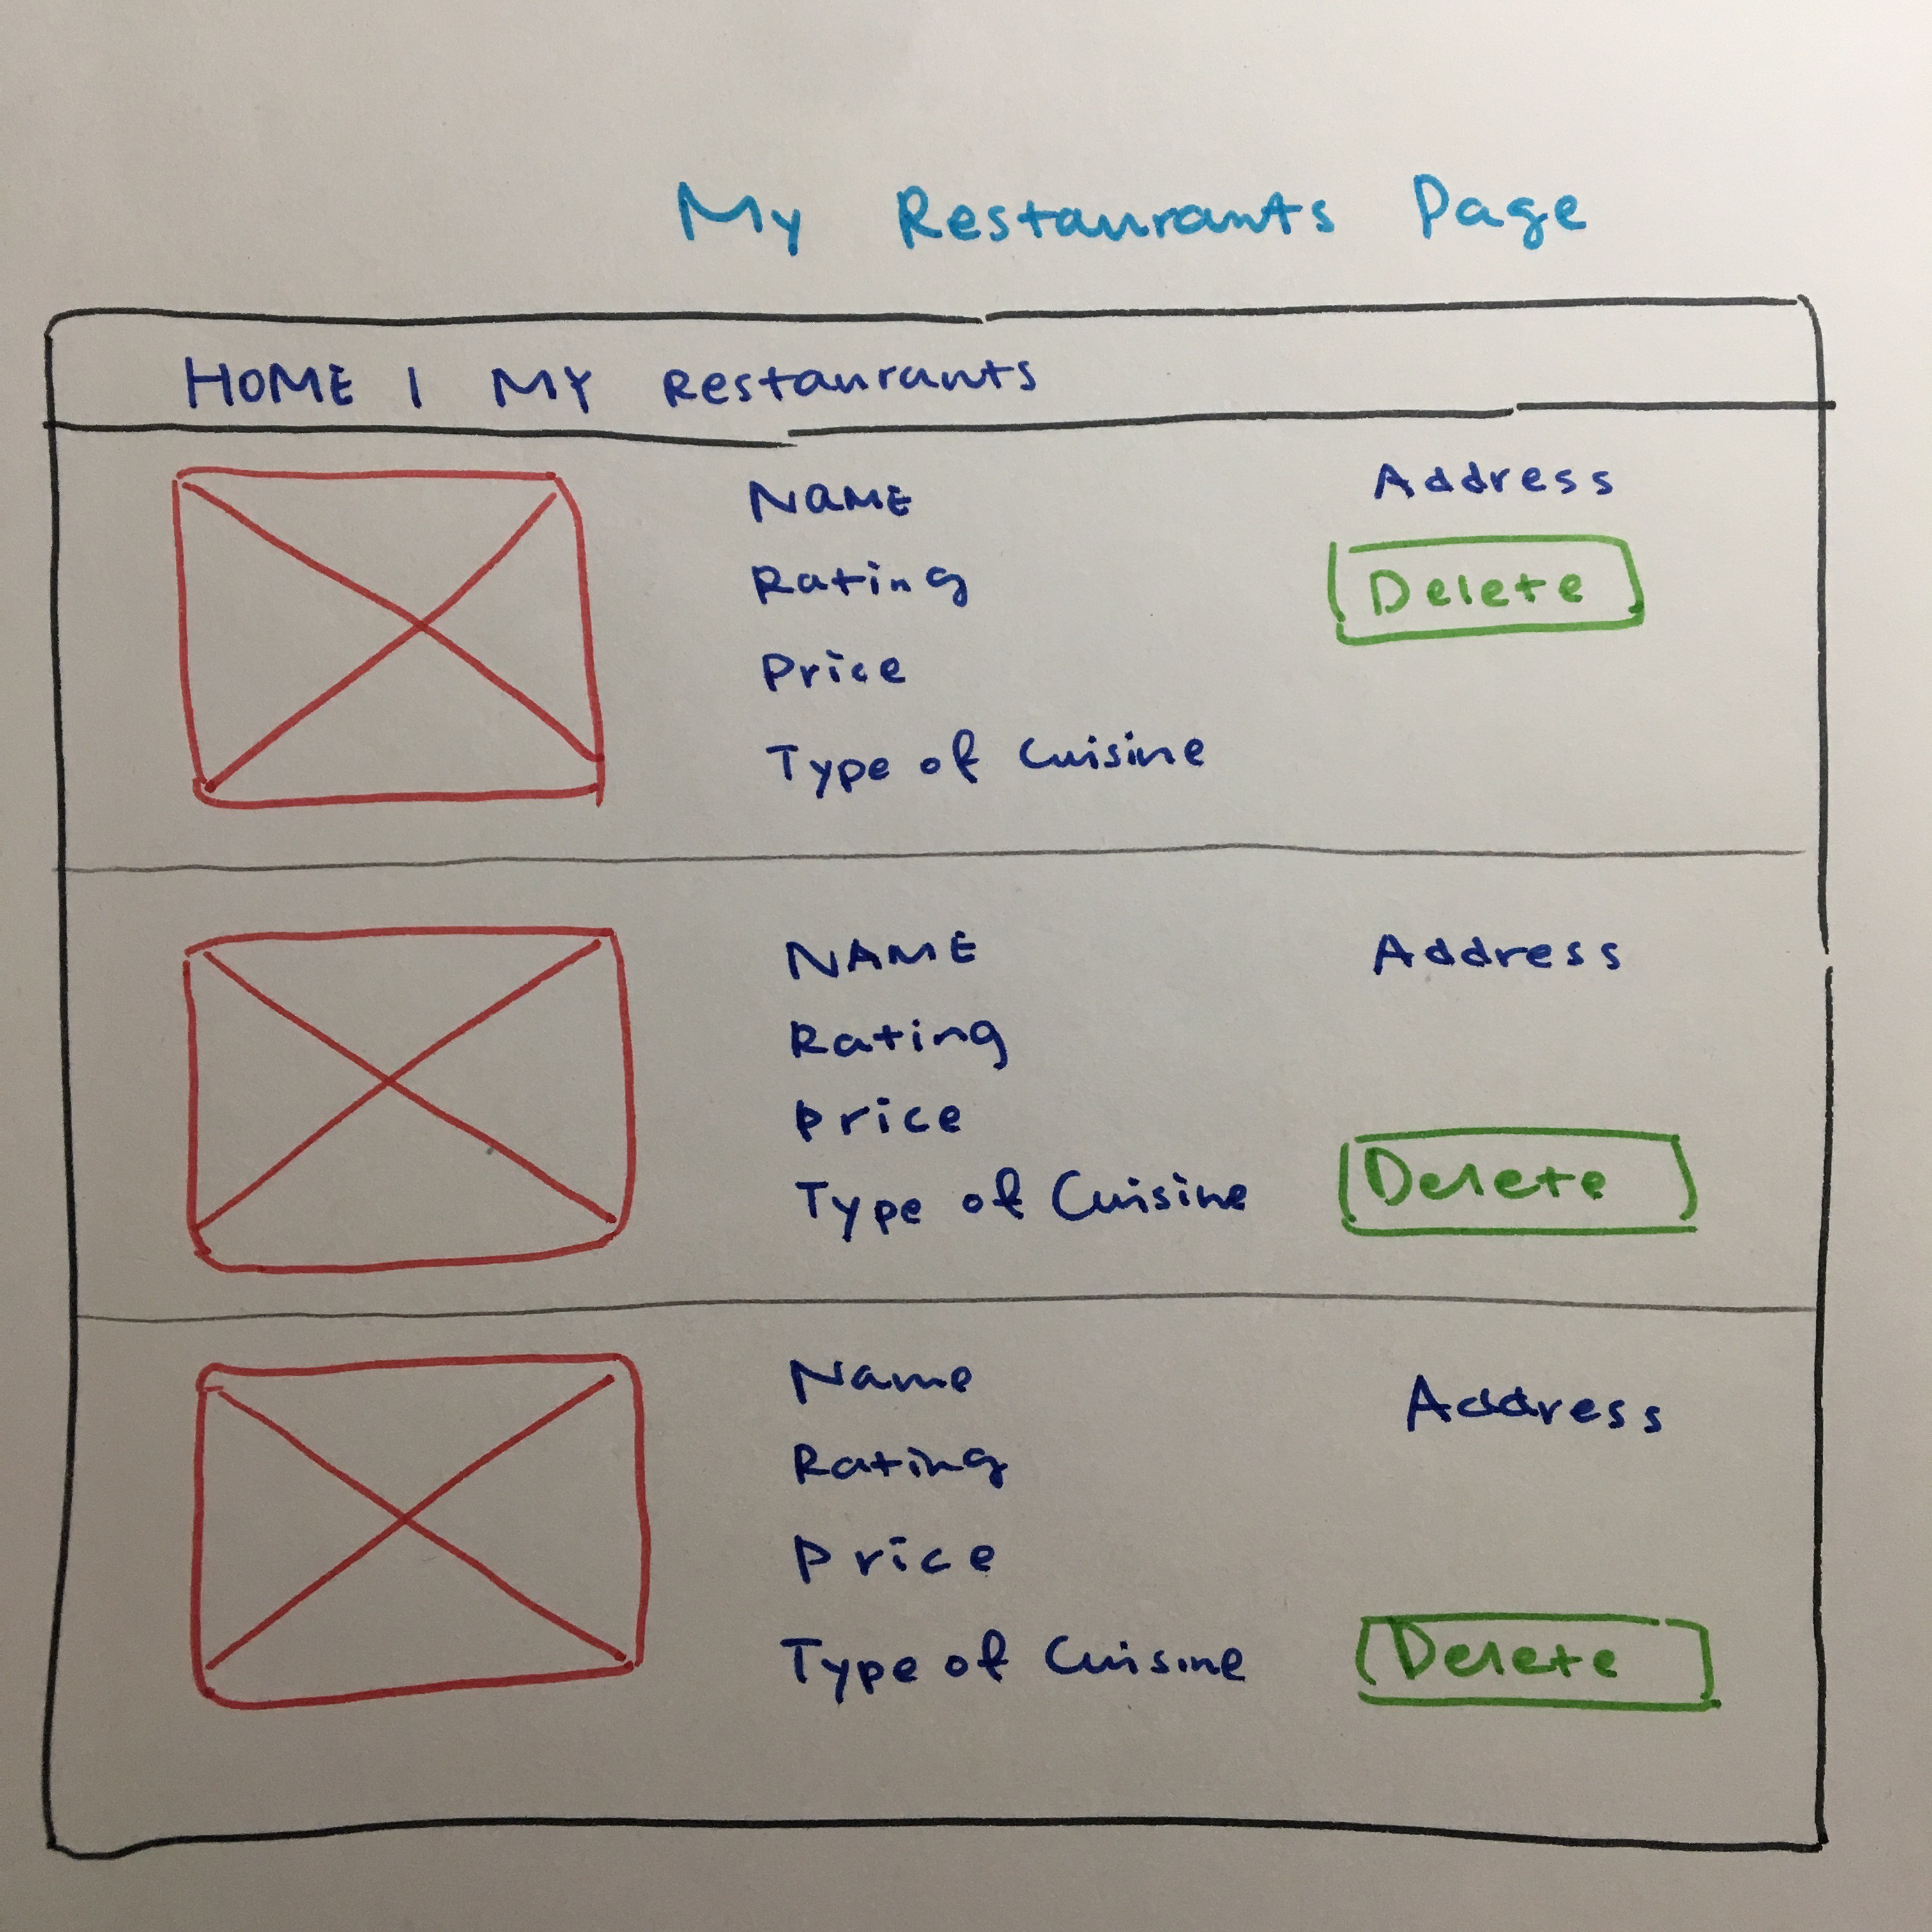 My Restaurants Page
HOME | MY Restaurants
NAME
Rating
Price
Type of Cuisine
Address
Delete
NAME
Rating
Price
Type of Cuisine
Address
Delete
Name
Rating
Price
Type of Cuisine
Address
Delete